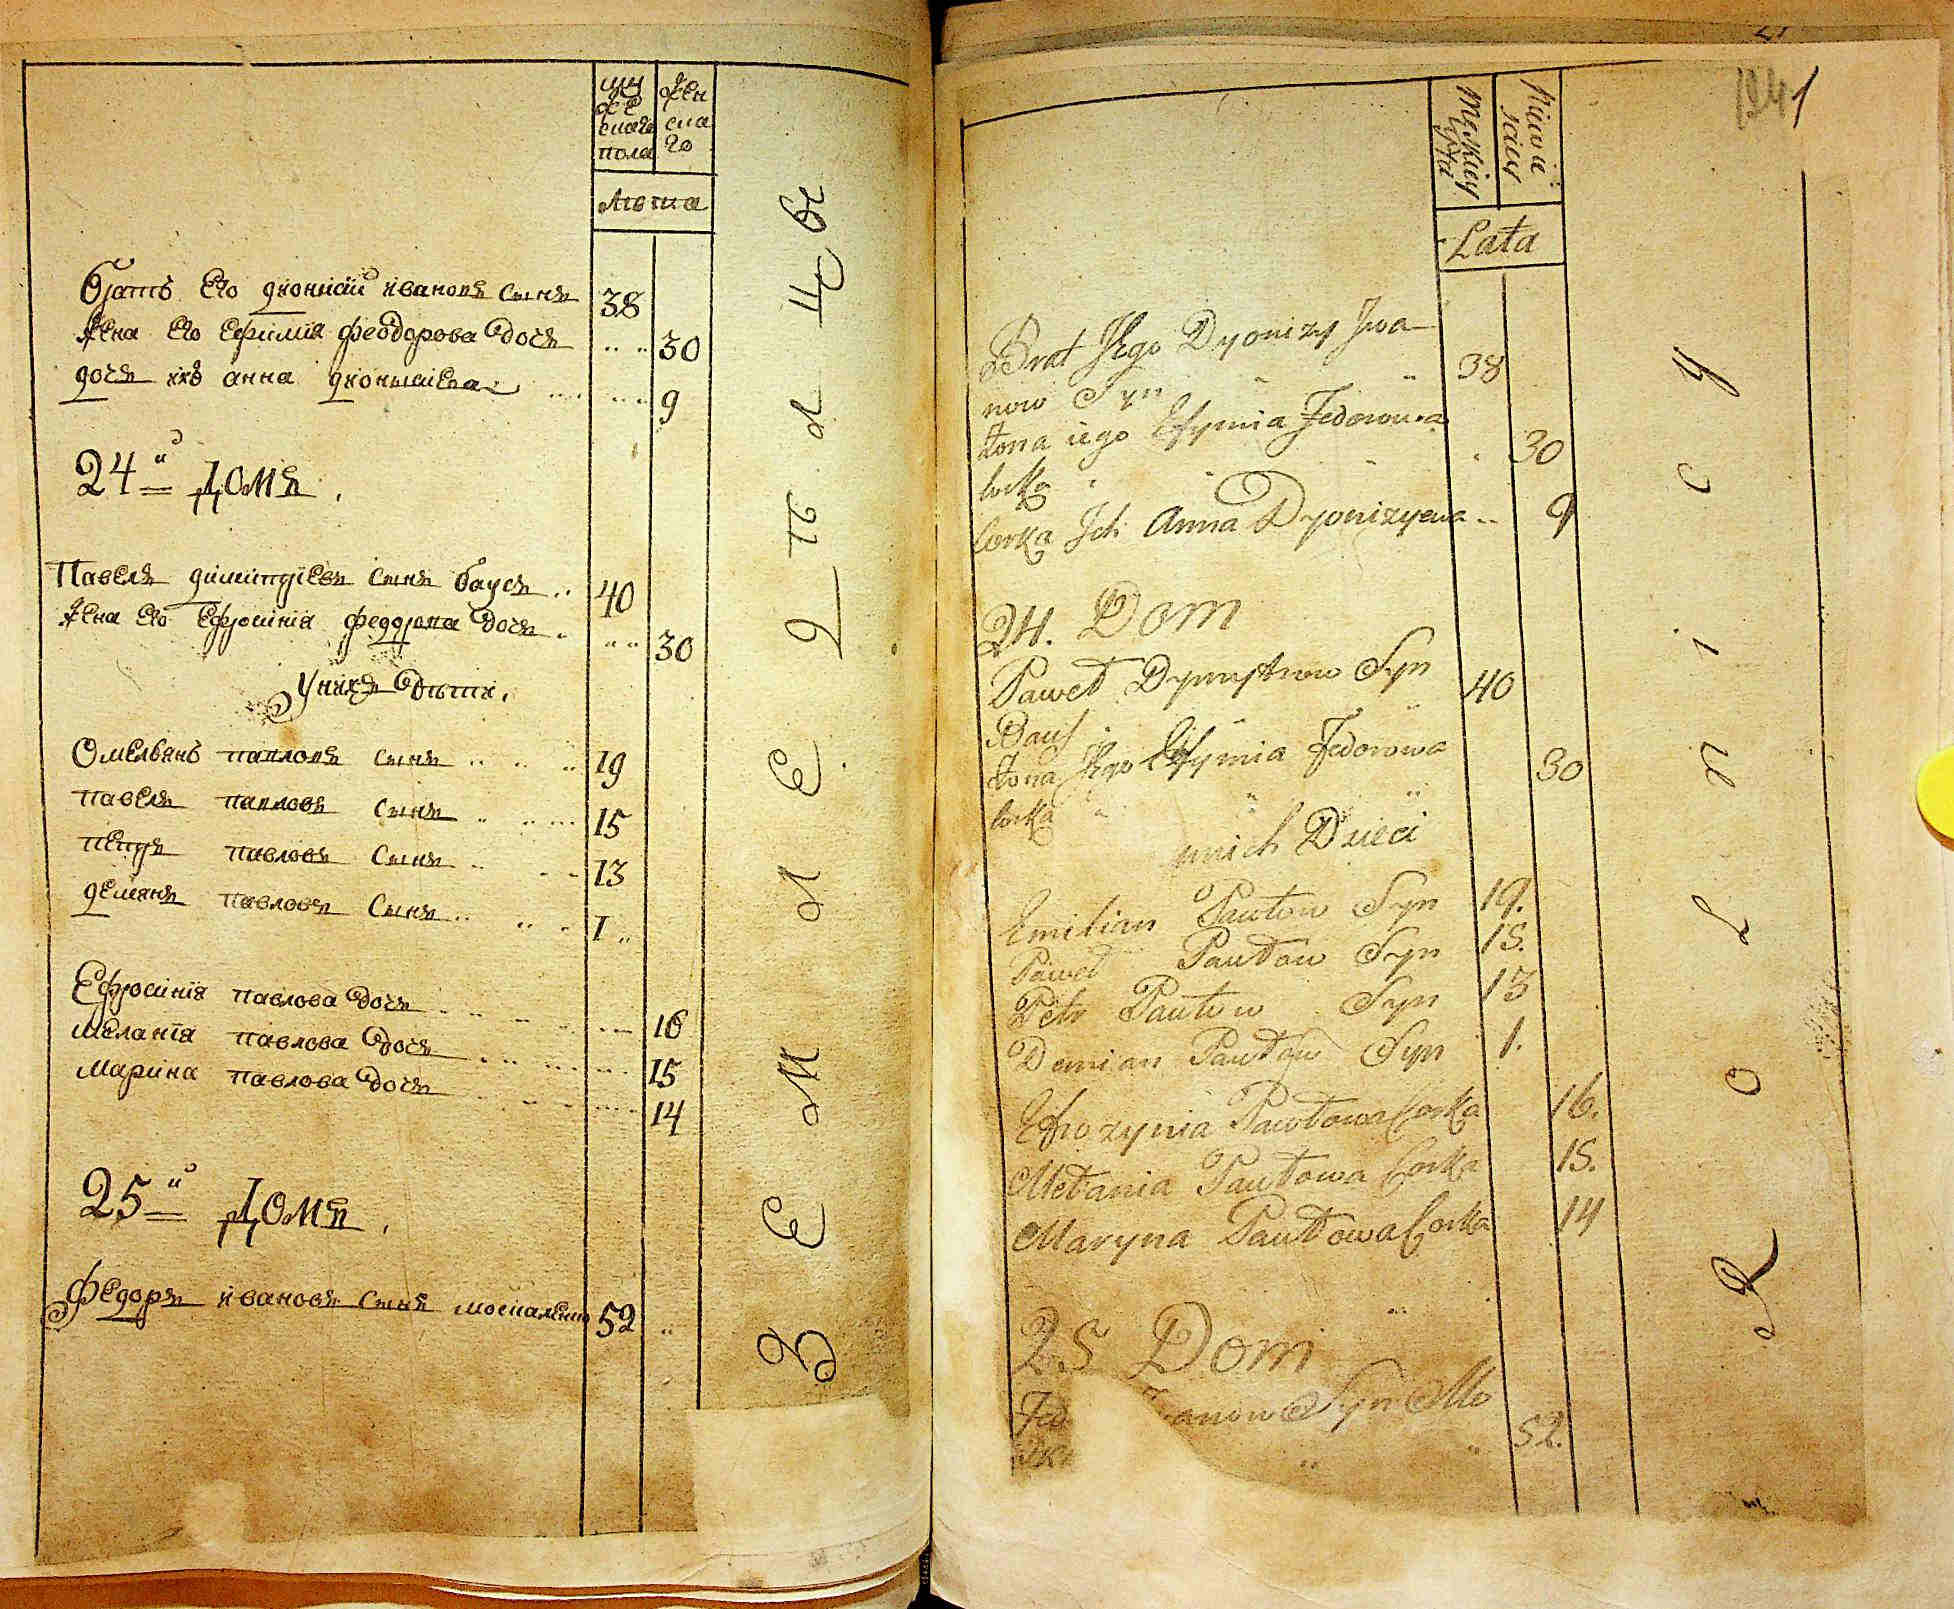 мужескаго пола
женскаго
Лѣта
Братъ Его Дионисий Ивановъ Сынъ 38
Жена Его Ефимия Феодорова Дочь .. .. 30
Дочь ихъ Анна Дионисиева .. .. 9
24й Домъ.
Павелъ Димитріевъ Сынъ Баусъ .. 40
Жена Его Ефросинія Федорова Дочь .. .. 30
У нихъ Дѣти.
Омельянъ Павловъ Сынъ .. .. .. 19
Павелъ Павловъ Сынъ .. .. .. 15
Петръ Павловъ Сынъ .. .. 13
Демянъ Павловъ Сынъ .. .. .. 1 ..
Ефросинія Павлова Дочь .. .. .. 16
Меланія Павлова Дочь .. .. .. 15
Марина Павлова Дочь .. .. .. 14
25й Домъ.
Федоръ Ивановъ Сынъ 52 ..
ЗЕМЛЕДѢЛЦЫ
1
Męskiey
Lata
Brat Jego Dyonizy Iwa
now Syn " .. 38
Żona iego Efymia Fedorowa
Corka " " " . 30
Corka Ich Anna Dyonizyewa .. 9
24. Dom
Paweł Dymytrow Syn 40
Baus " "
Żona Jego Efymia Fedorowa 30
Corka " " "
u nich Dzieci
Emilian Pawłow Syn 19.
Paweł Pawłow Syn 15.
Petr Pawłow Syn 13
Demian Pawłow Syn 1.
Efrozynia Pawłowa Corka 16.
Mełania Pawłowa Corka 15.
Maryna Pawłowa Corka 14
25 Dom
Fed anow Syn Mo
52.
Rolnicy